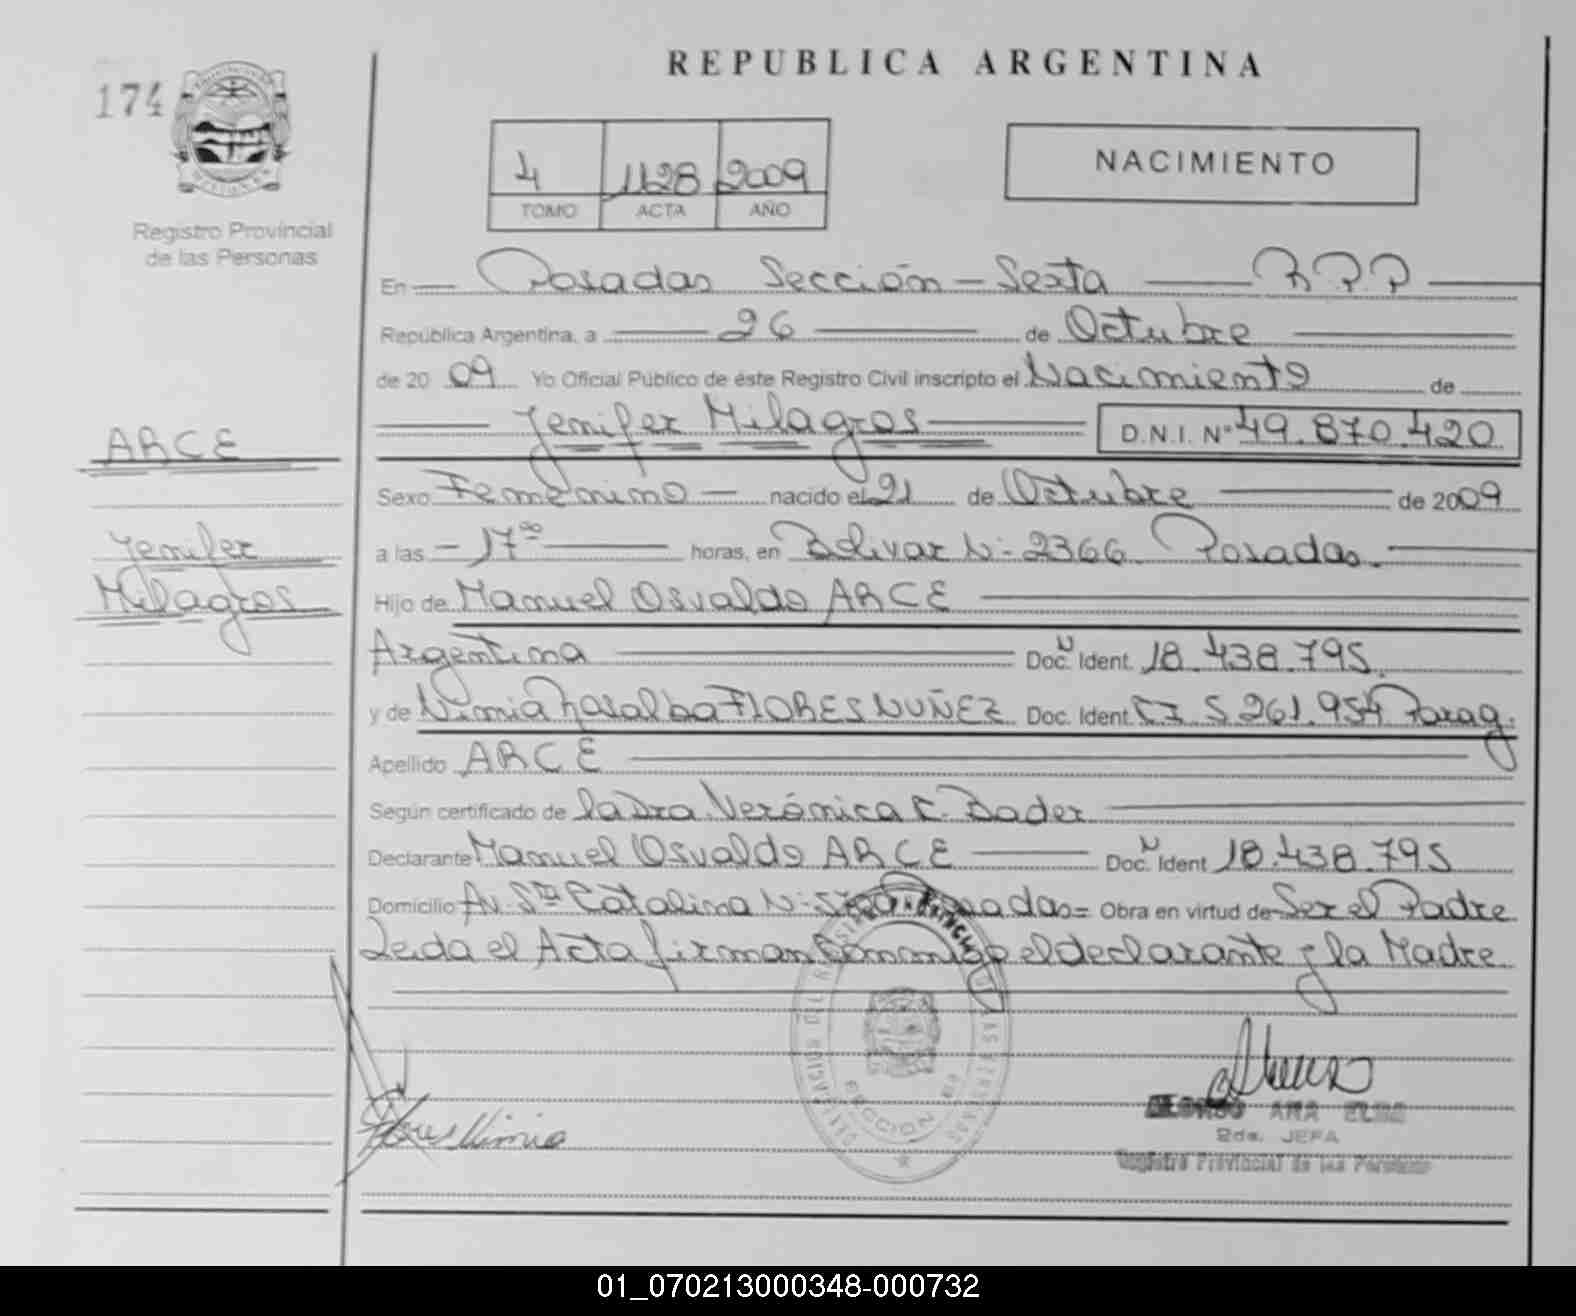 REPUBLICA ARGENTINA
174
NACIMIENTO
4 1128 2009
TOMO ACTA AÑO
Registro Provincial
de las Personas
En Posadas Sección - Sexta R P P
República Argentina, a 26 de Octubre
de 20 09 Yo Oficial Público de éste Registro Civil inscripto el Nacimiento de
Jenifer Milagros D.N.I. Nº 49.870.420
ARCE
Sexo Femenino nacido el 21 de Octubre de 2009
Jenifer
Milagros
a las 17⁰⁰ horas, en Bolivar Nº 2366 Posadas.
Hijo de Manuel Osvaldo ARCE
Argentina Doc. Ident. N 18.438.795.
y de Nimia Rosalba FLORES NUÑEZ Doc. Ident CI 5.261.954 Parag.
Apellido ARCE
Según certificado de la Dra. Verónica C. Bader
Declarante Manuel Osvaldo ARCE Doc. Ident N 18.438.795
Domicilio Av. Sta Catalina Nº Posadas = Obra en virtud de Ser el Padre
Leida el Acta firman conmigo el declarante y la Madre
Flores Nimia
SECCION
ALONSO ANA ELSA
2da. JEFA
Registro Provincial de las Personas
01_070213000348-000732